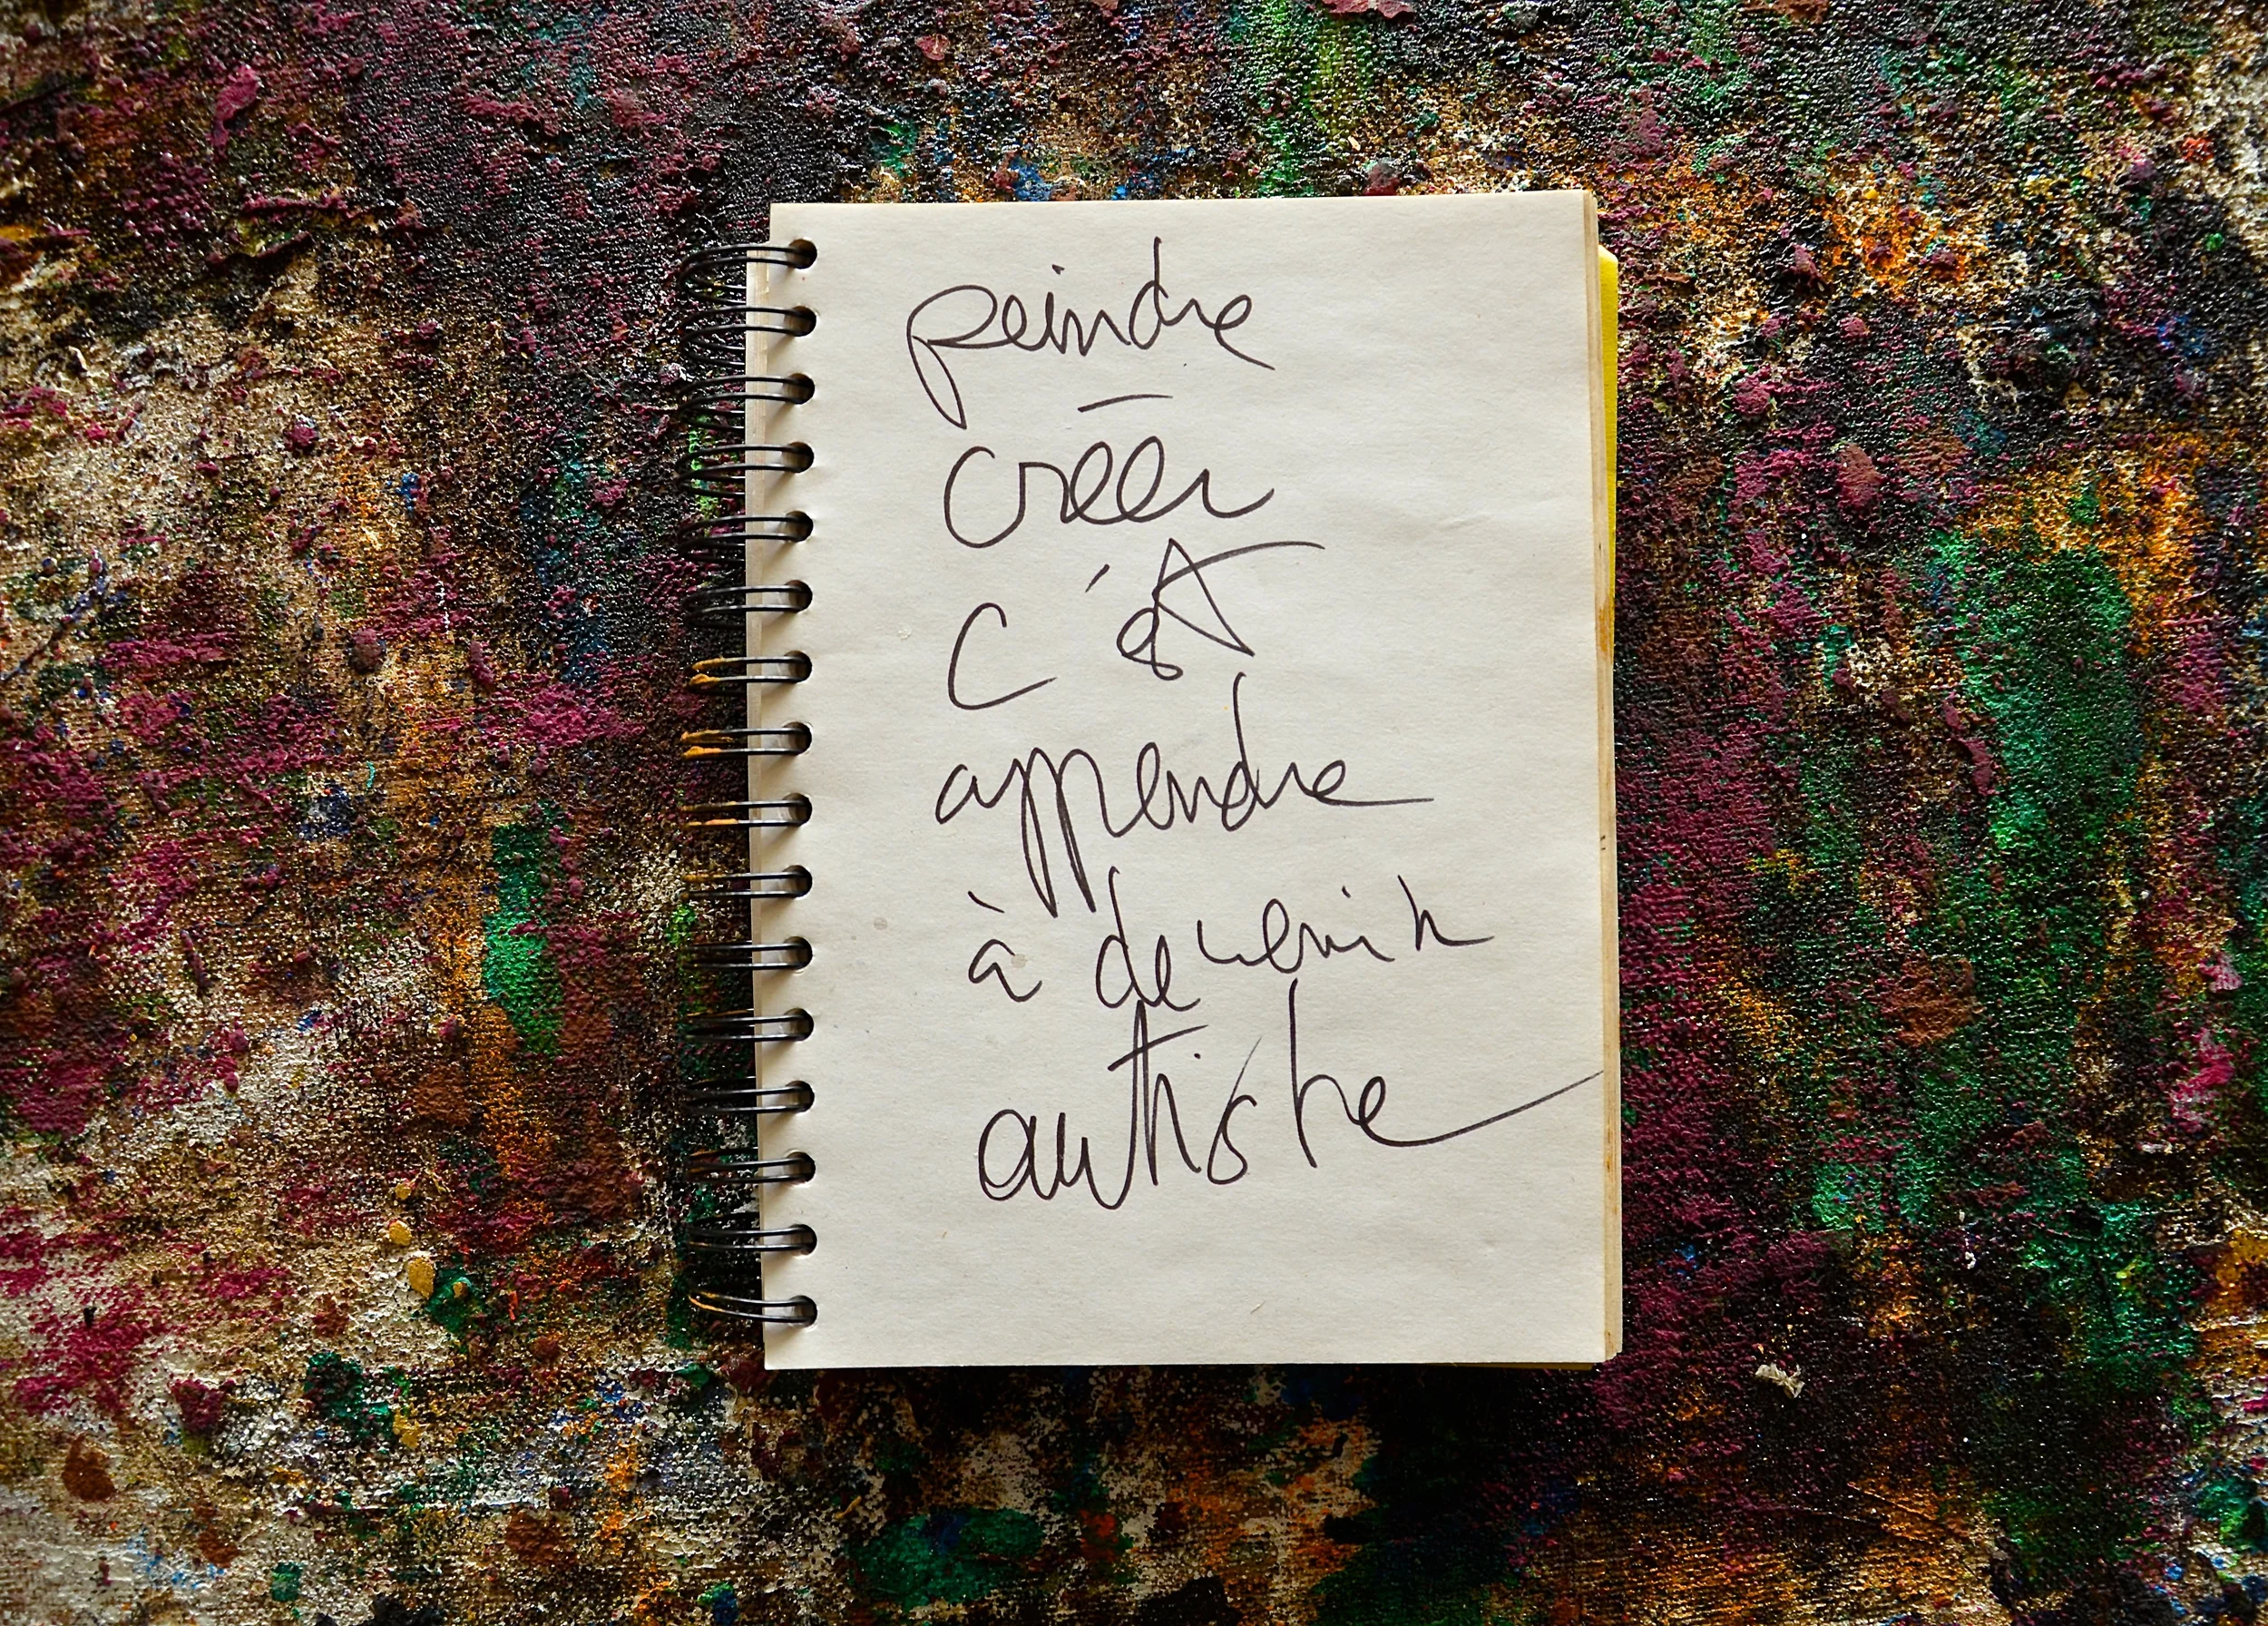 peindre
créer
c'est
apprendre
à devenir
autiste